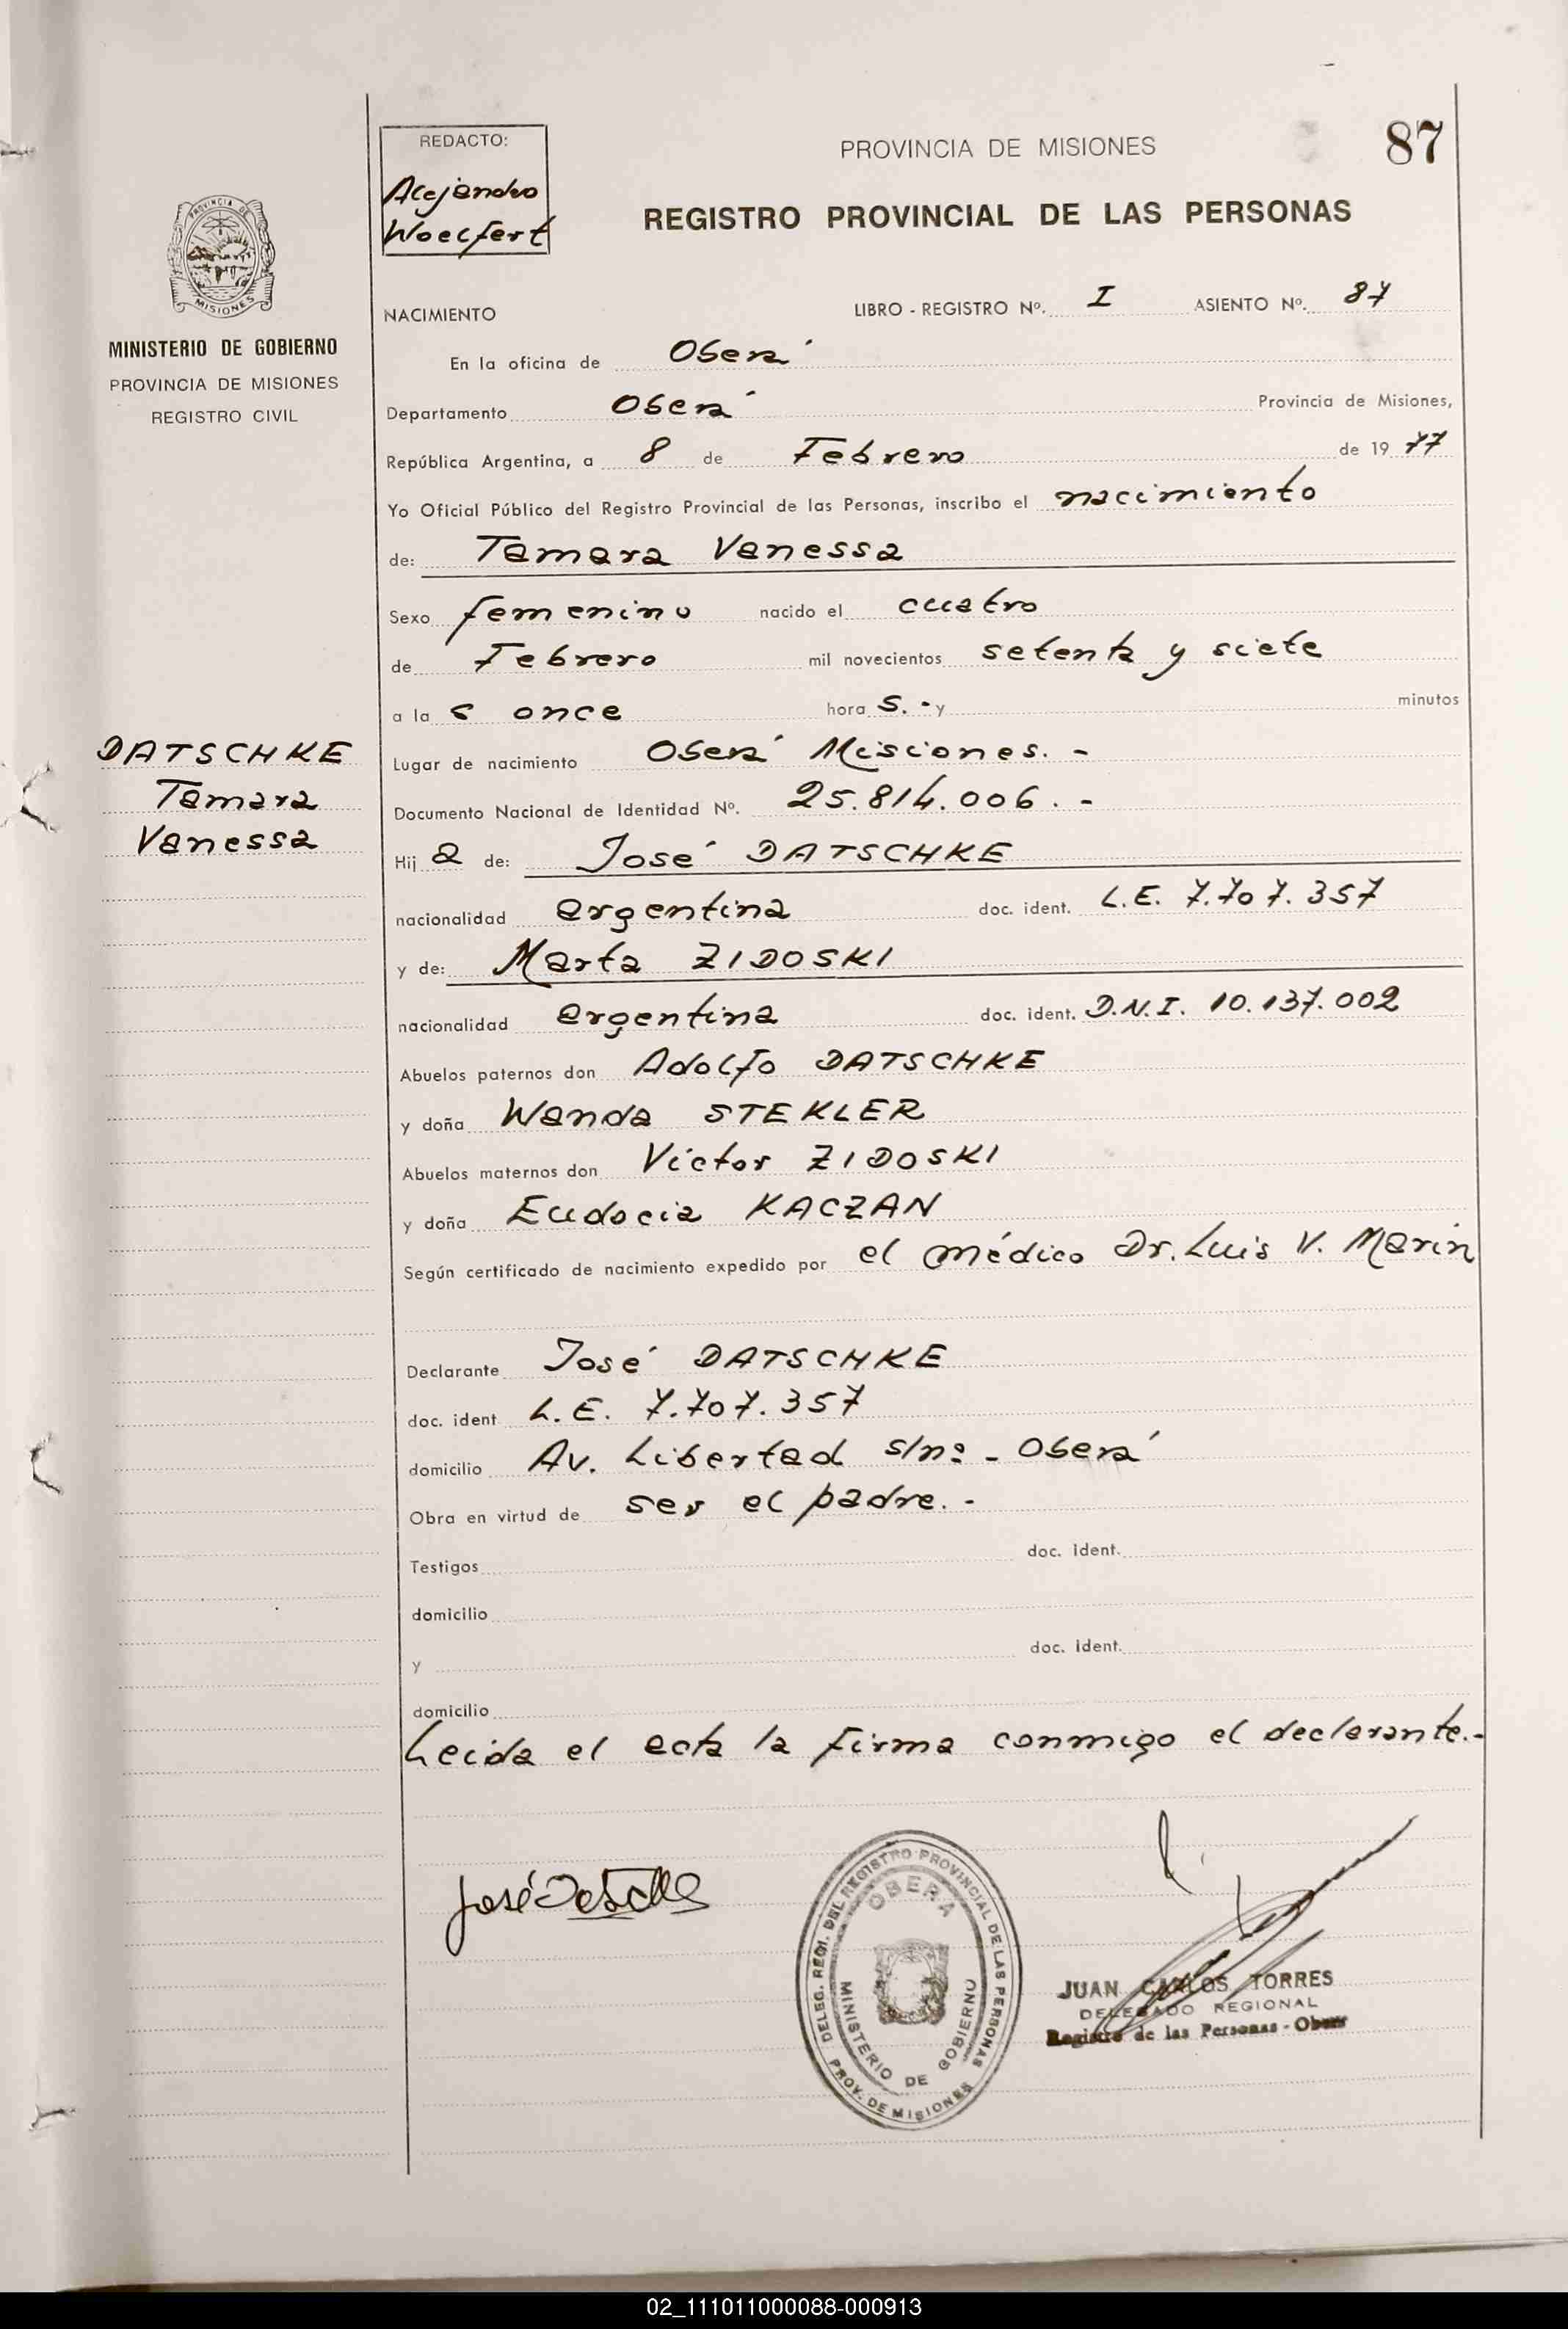 REDACTO:
Alejandro
Woelfert
PROVINCIA DE MISIONES
87
REGISTRO PROVINCIAL DE LAS PERSONAS
PROVINCIA DE
MISIONES
MINISTERIO DE GOBIERNO
PROVINCIA DE MISIONES
REGISTRO CIVIL
NACIMIENTO LIBRO - REGISTRO Nº. I ASIENTO Nº. 87
En la oficina de Oberá
Departamento Oberá Provincia de Misiones,
República Argentina, a 8 de Febrero de 1977
Yo Oficial Público del Registro Provincial de las Personas, inscribo el nacimiento
de: Tamara Vanessa
Sexo femenino nacido el cuatro
de Febrero mil novecientos setenta y siete
a la s once hora s.- y minutos
DATSCHKE
Tamara
Vanessa
Lugar de nacimiento Oberá Misiones.-
Documento Nacional de Identidad Nº. 25.814.006.-
Hij a de: José DATSCHKE
nacionalidad argentina doc. ident. L.E. 7.707.357
y de: Marta ZIDOSKI
nacionalidad argentina doc. ident. D.N.I. 10.137.002
Abuelos paternos don Adolfo DATSCHKE
y doña Wanda STEKLER
Abuelos maternos don Victor ZIDOSKI
y doña Eudocia KACZAN
Según certificado de nacimiento expedido por el médico Dr. Luis V. Marin
Declarante José DATSCHKE
doc. ident L.E. 7.707.357
domicilio Av. Libertad s/nº - Oberá
Obra en virtud de ser el padre.-
Testigos doc. ident.
domicilio
y doc. ident.
domicilio
Leida el acta la firma conmigo el declarante.-
José
DELEG. REGI. DEL REGISTRO PROVINCIAL DE LAS PERSONAS
OBERA
MINISTERIO DE GOBIERNO
PROV. DE MISIONES
JUAN CARLOS TORRES
DELEGADO REGIONAL
Registro de las Personas - Obera
02_111011000088-000913